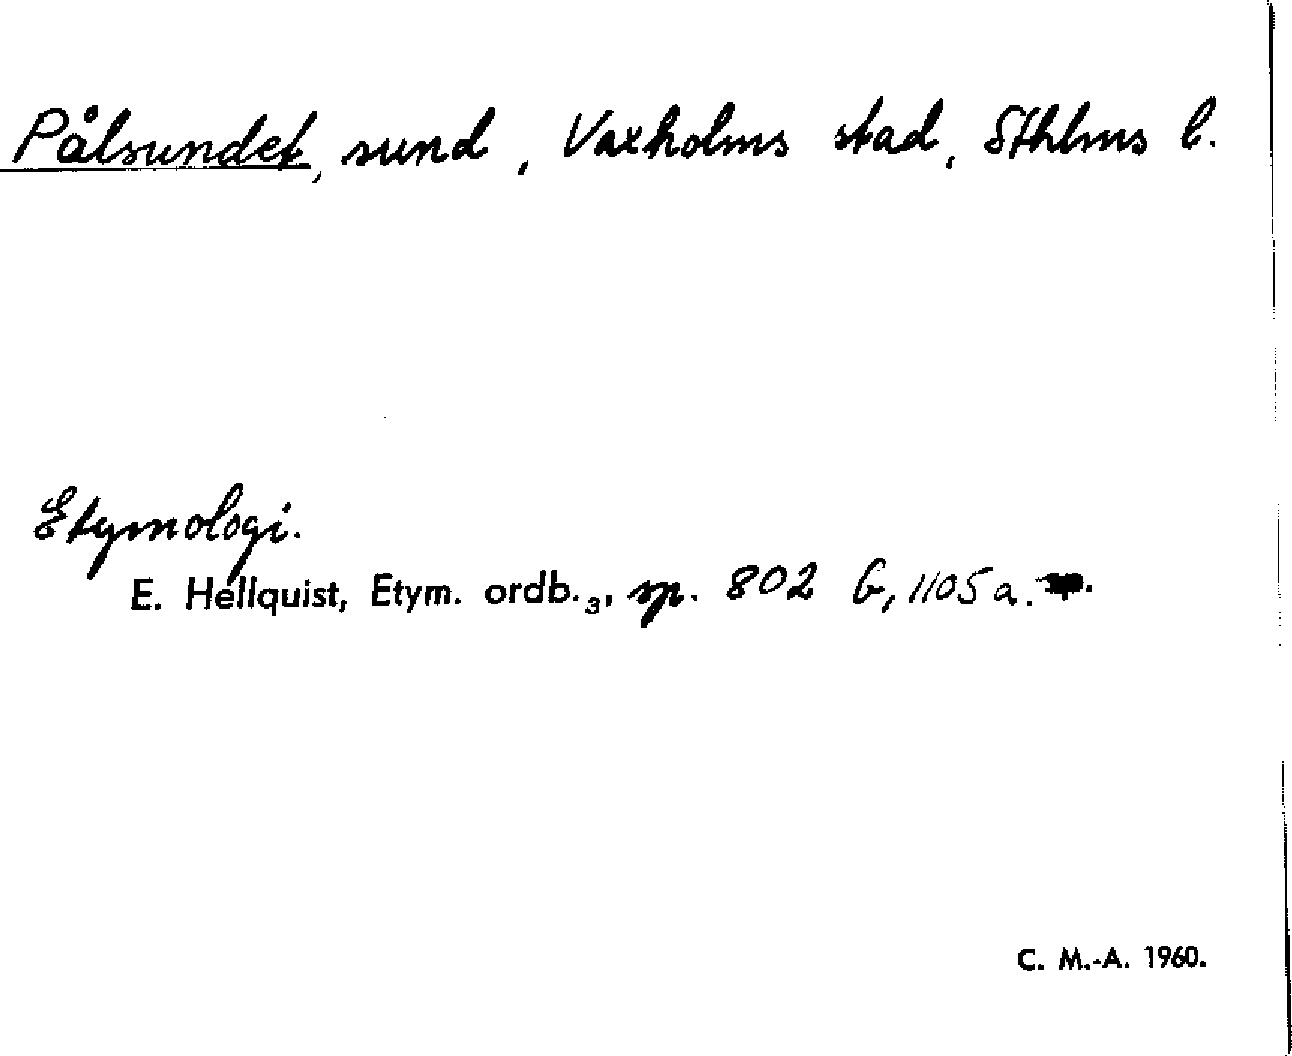 Pålsundet, sund, Vaxholms stad, Sthlms l.
Etymologi.
E. Hellquist, Etym. ordb.₃, sp. 802 b, 1105 a.
C. M.-A. 1960.